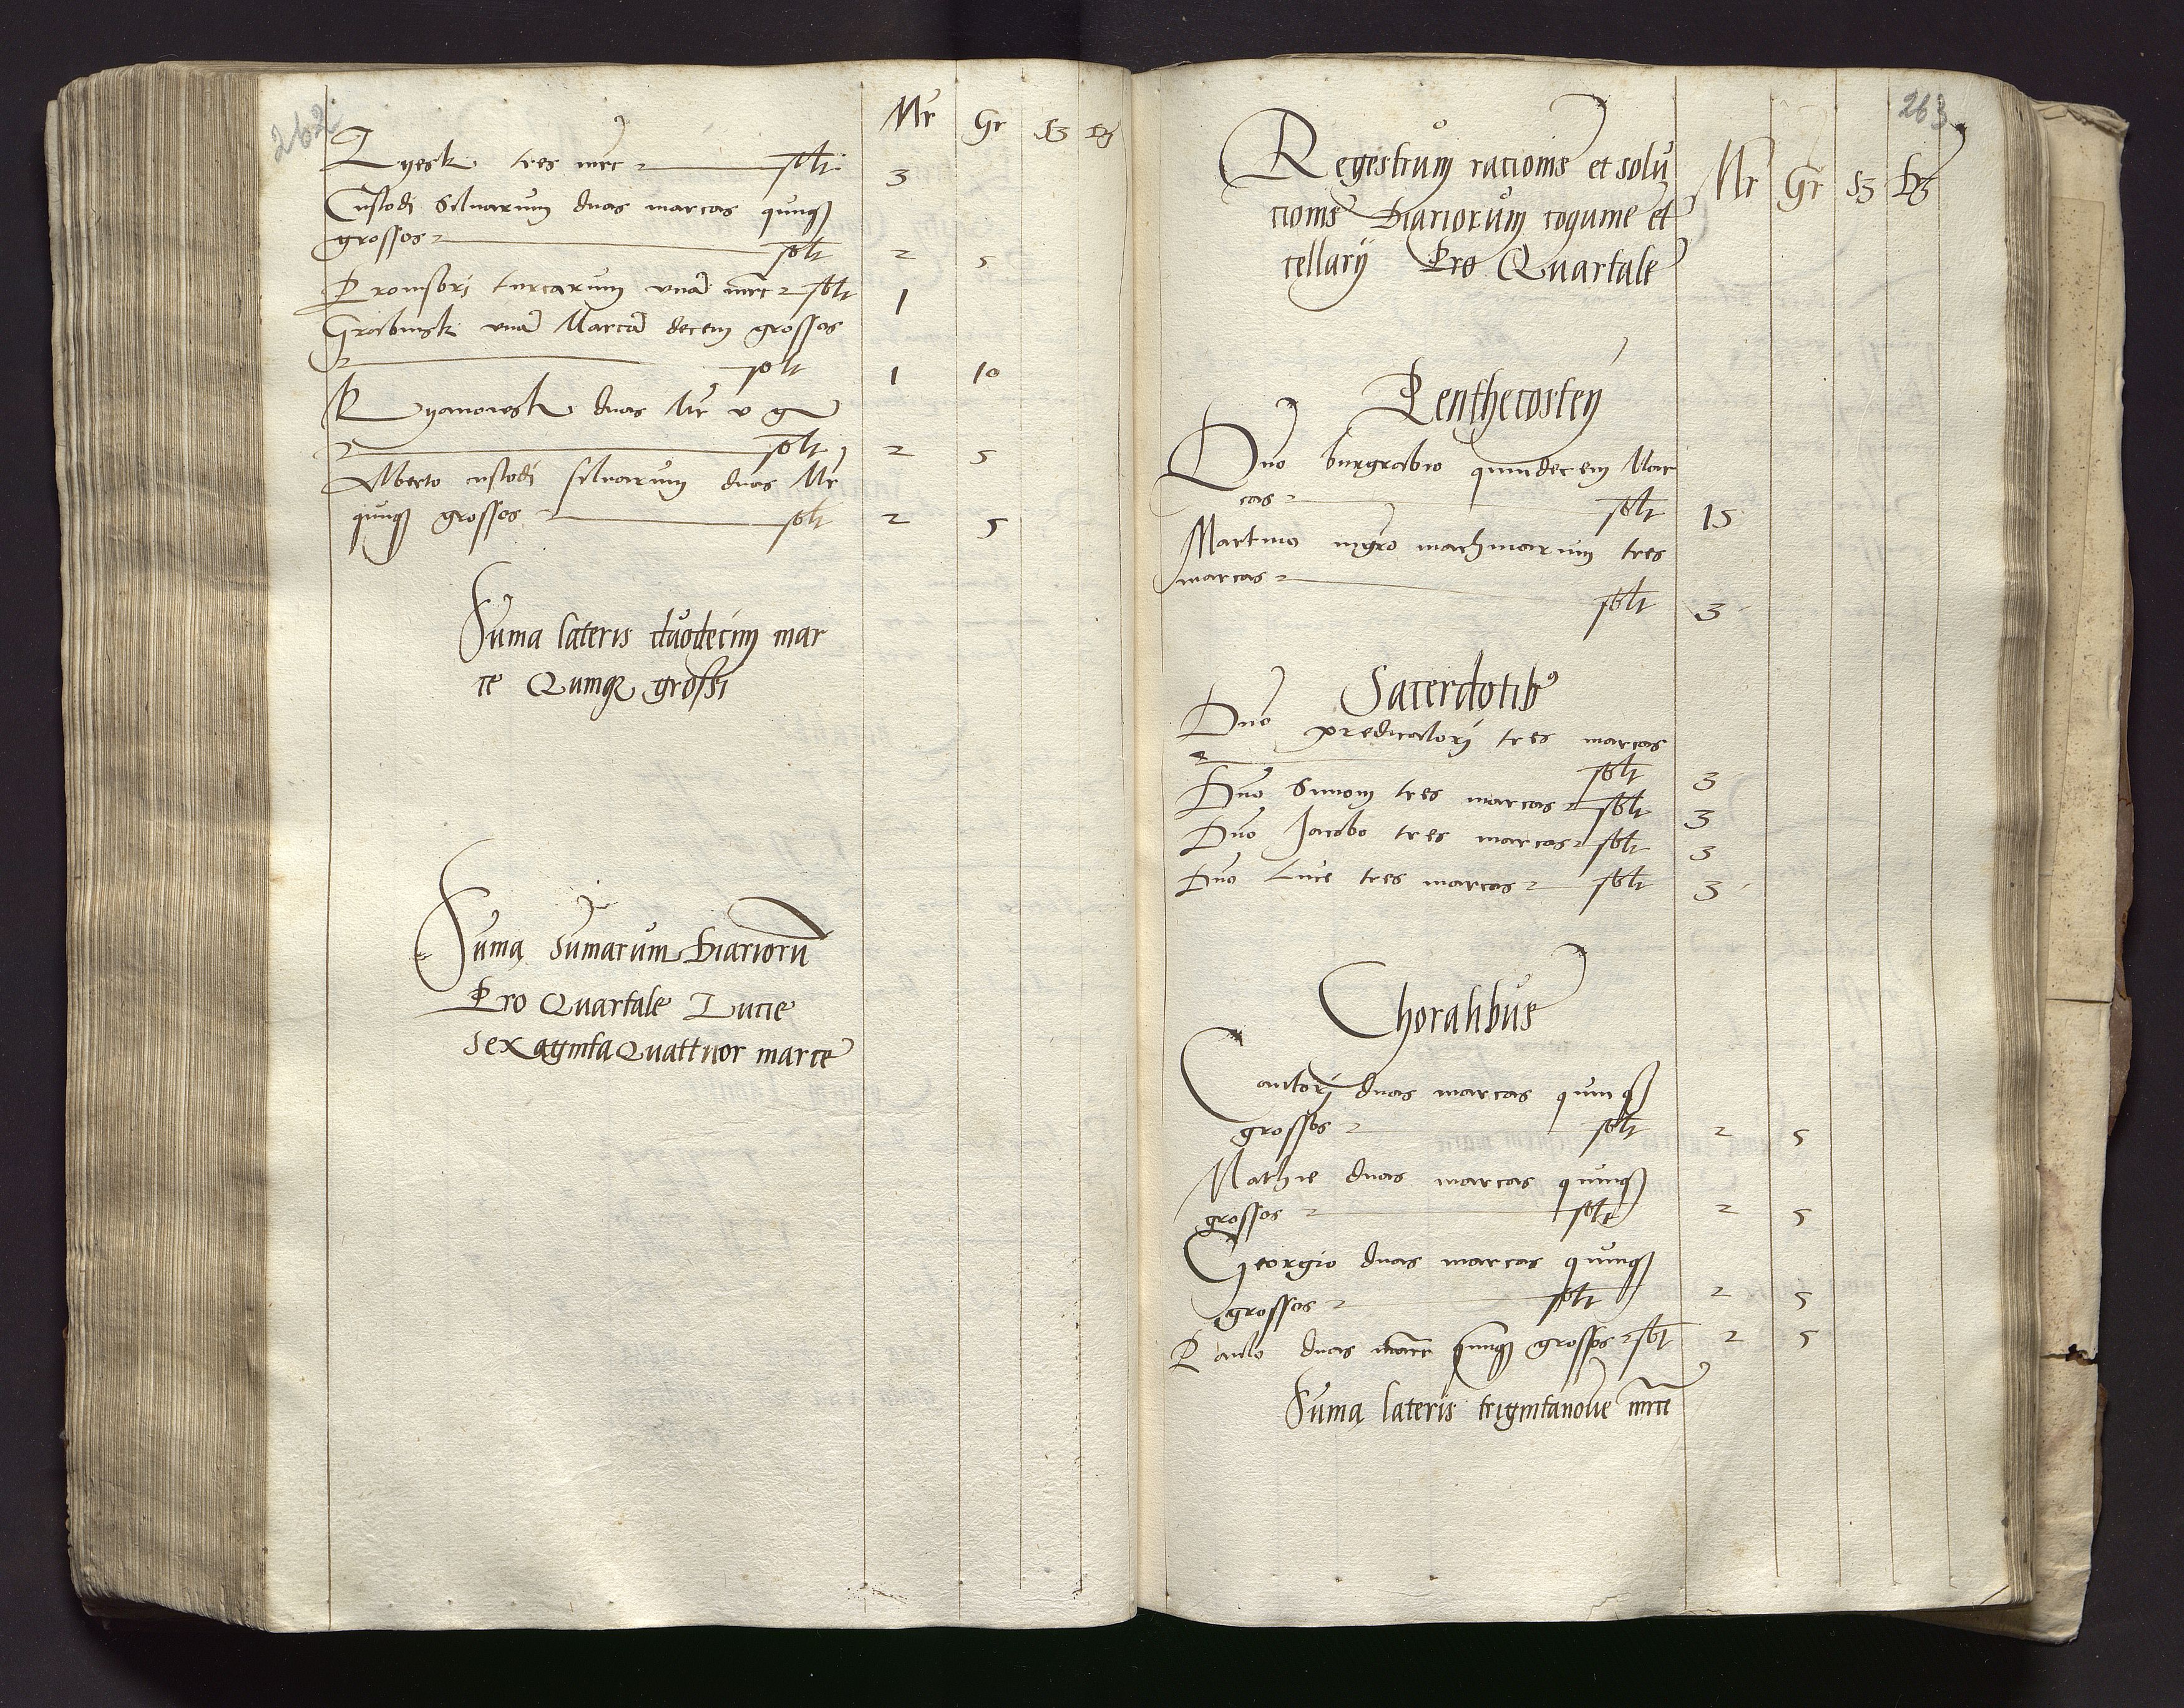 262
Mr Gr
Lyesk tres mrc solt 3
Custodi Siluarum duas marcas quinq
grossos solt 2 5
Prouisori turcarum vna mrc solt 1
Grabinsk vna Marca decem grossos
solt 1 10
Kyanowsk duas Mr v g
solt 2 5
Alberto custodi siluarum duas Mr
quinq grossos solt 2 5
Suma lateris duodecim mar
ce Quinq grossi
Suma Sumarum Diarioru
Pro Quartale Lucie
Sexaginta Quattuor marce
263
Regestrum racionis et solu
cionis Diariorum coquine et
cellarij Pro Quartale
Mr Gr
Penthecosten
Dno burgrabio quindecem Mar
cas solt 15
Martino mgro machinarum tres
marcas solt 3
Sacerdotib9
Dno predicatori tres marcas
solt 3
Dno Simoni tres marcas solt 3
Dno Jacobo tres marcas solt 3
Dno Luce tres marcas solt 3
Choralibus
Cantori duas marcas quinq
grossos solt 2 5
Mathie duas marcas quinq
grossos solt 2 5
Georgio duas marcas quinq
grossos solt 2 5
Paulo duas marc quinq grossos solt 2 5
Suma lateris trigintanoue mrce